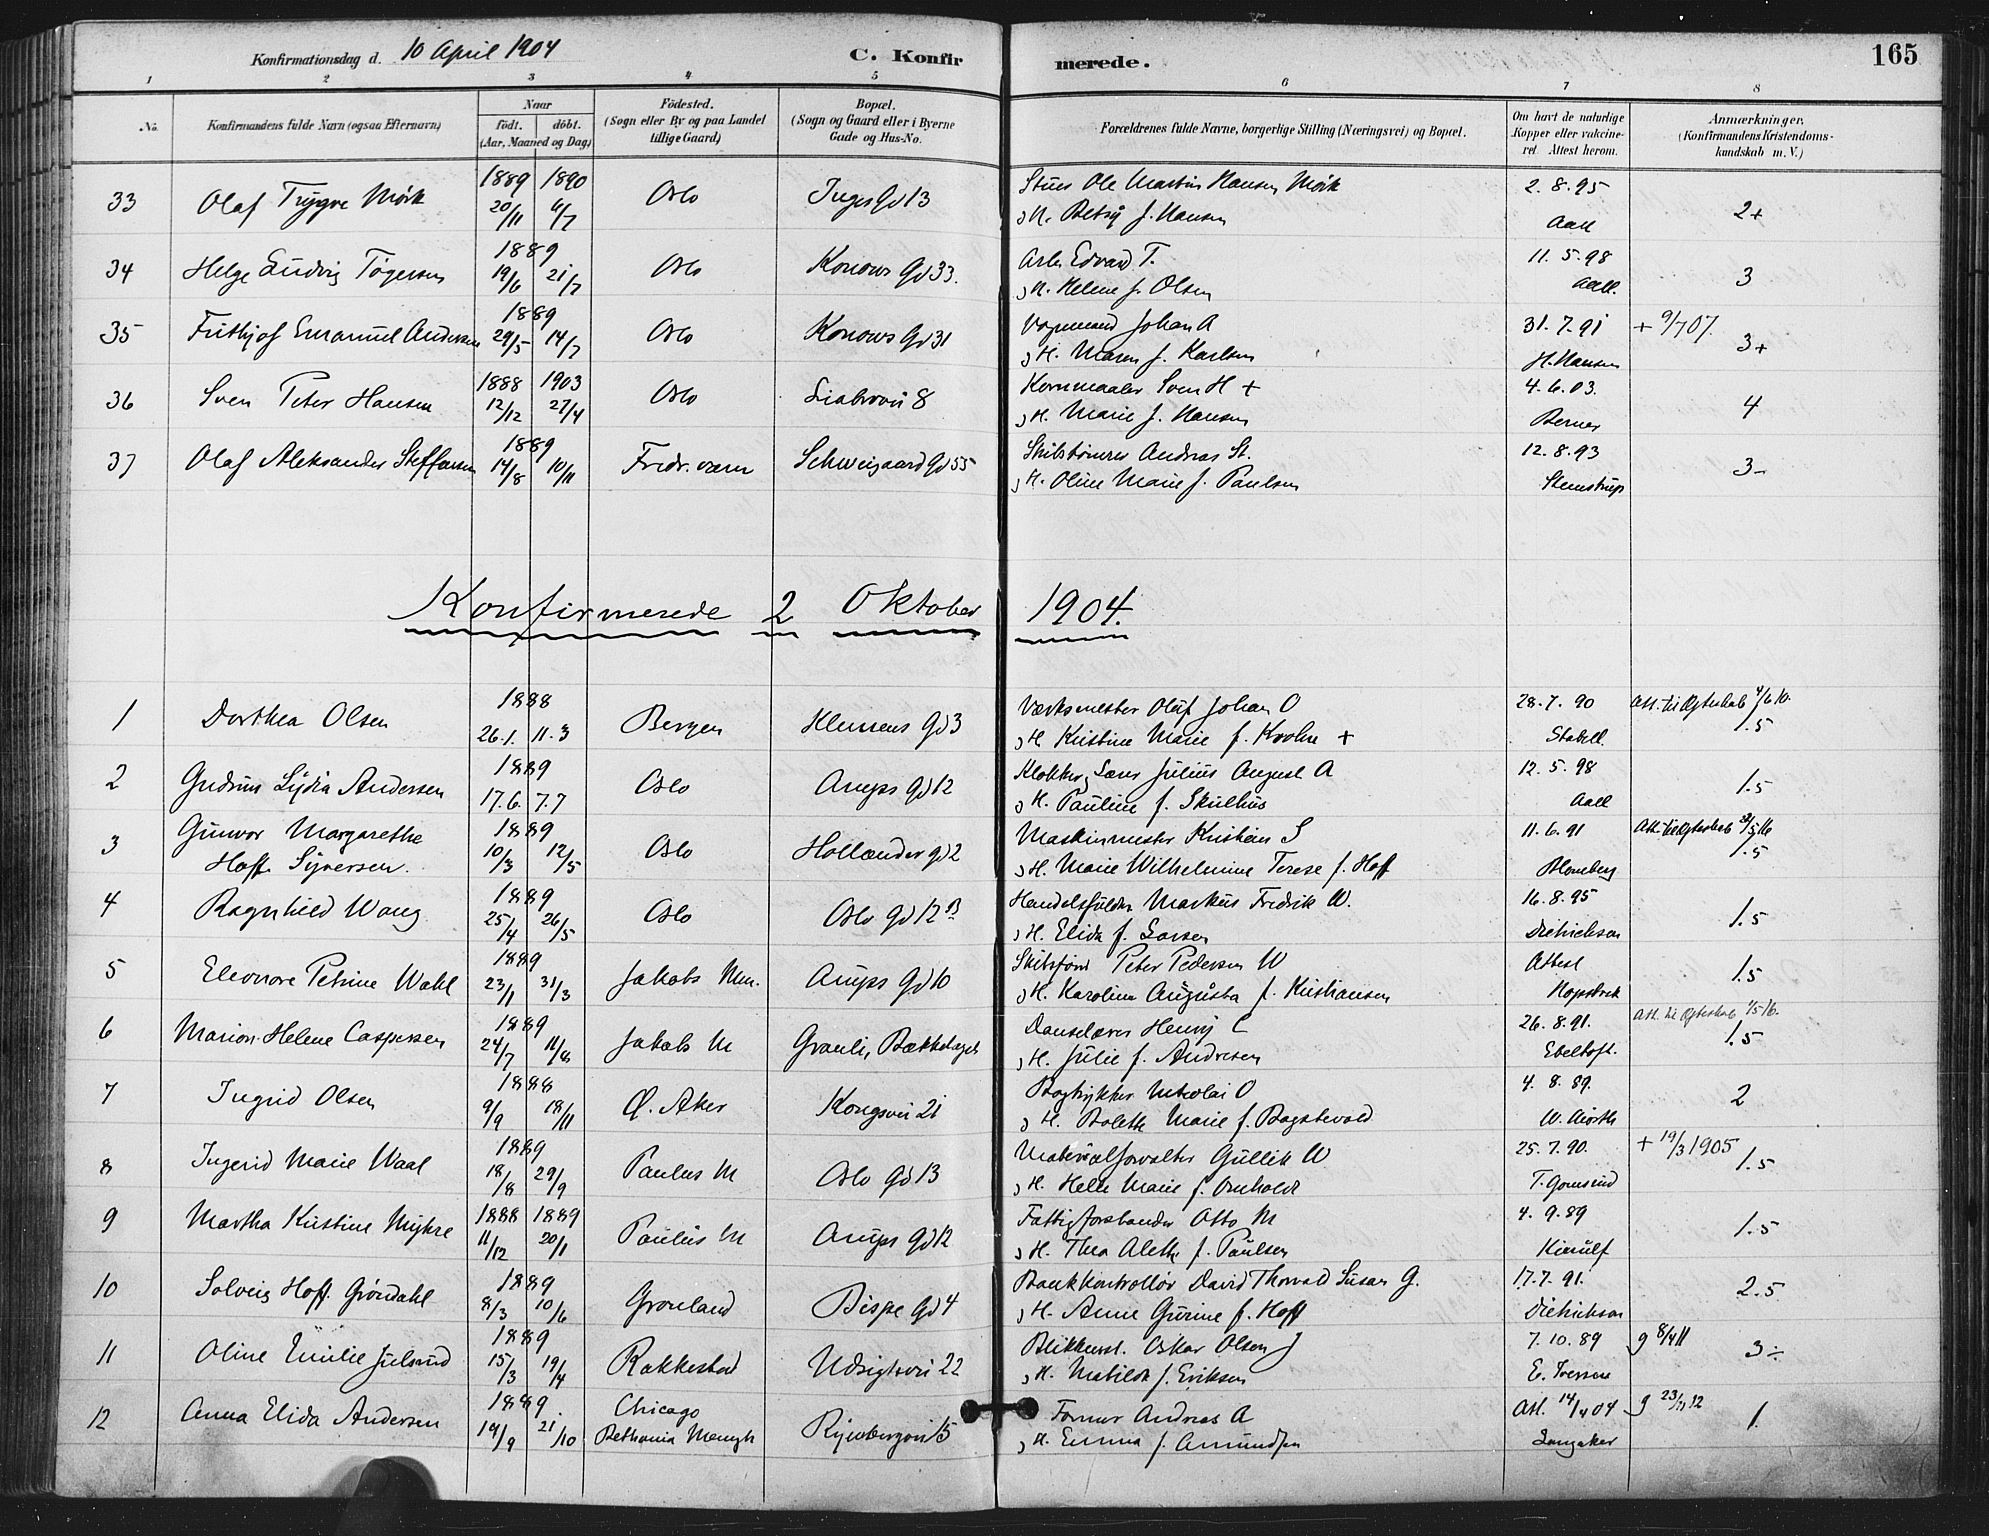 Konfirmationsdag d. 10 April 1904 C. Konfirmerede. 165
1 2 3 4 5 6 7 8
No. Konfirmandens fulde Navn (ogsaa Efternavn) Naar födt. döbt. (Aar, Maaned og Dag) Födested. (Sogn eller By og paa Landet tillige Gaard) Bopæl. (Sogn og Gaard eller i Byerne Gade og Hus-No. Forældrenes fulde Navne, borgerlige Stilling (Næringsvei) og Bopæl. Om havt de naturlige Kopper eller vakcineret. Attest herom. Anmærkninger. (Konfirmandens Kristendomskundskab m. V.)
33 Olaf Trygve Mörk 1889 20/11 1890 6/7 Oslo Inges Gd 13 Stuer Ole Martin Hansen Mörk 2.8.95 2+
H. Betsy f. Hansen Aall
34 Helge Ludvig Tögersen 1889 19/6 21/7 Oslo Konows Gd 33. Arb. Edvard T. 11.5.98 3
H. Helene f. Olsen Aall.
35 Frithjof Emanuel Andersen 1889 29/5 14/7 Oslo Konows Gd 31 Vognmand Johan A 31.7.91 + 9/7 07. 3+
H. Maren f. Karlsen H. Hansen
36 Sven Peter Hansen 1888 12/12 1903 27/4 Oslo Liabrovei 8 Kornmaaler Sven H + 4.6.03. 4
H. Marie f. Hansen Berner
37 Olaf Aleksander Steffensen 1889 14/8 10/11 Fredr. værn Schweigaard Gd 55 Skibstömrer Andreas St. 12.8.93 3-
H. Oline Marie f. Paulsen Steenstrup
Konfirmerede 2 Oktober 1904.
1 Dorthea Olsen 1888 26.1. 11.3 Bergen Klemens Gd 3 Værksmester Oluf Johan O 28.7.90 Att. til Ægteskab 4/6 10. 1.5
H. Kristine Marie f. Krohn + Stabell.
2 Gudrun Lydia Andersen 1889 17.6. 7.7 Oslo Arups Gd 12 Klokker, Lærer Julius August A 12.5.98 1.5
H. Pauline f. Skulhus Aall
3 Gunvor Margarethe 1889 10/3 12/5 Oslo Hollænder gd 2 Maskinmester Kristian S 11.6.91 Att. til Ægteskab 1.5
Hoff Syversen. H. Marie Wilhelmine Terese f. Hoff Blomberg
4 Ragnhild Wang 1889 25/4 26/5 Oslo Oslo Gd 12 B Handelsfuldm Markus Fredrik W. 16.8.95 1.5
H. Elida f. Larsen Dietrichson
5 Eleonore Petrine Wahl 1889 23/1 31/3 Jakobs Men. Arups Gd 10 Skibsförer Peter Pedersen W Attest 1.5
H. Karoline Augusta f. Kristiansen Hopstock
6 Marion Helene Caspersen 1889 24/7 11/8 Jakobs M Granli, Bækkelaget Danselærer Henry C 26.8.91. Att. til Ægteskab 1/5 16. 1.5
H. Julie f. Andresen Ebeltoft.
7 Ingrid Olsen 1888 9/9 18/11 Ø. Aker Kongsvei 21 Bogtrykker Nikolai O 4.8.89. 2
H. Bolette Marie f.
8 Ingerid Marie Waal 1889 18/8 29/9 Paulus M Oslo Gd 13 Materialforvalter Gullik W 25.7.90. + 19/3 1905 1.5
H. Helle Marie f. Arnholdt
9 Martha Kristine Myhre 1888 11/12 1889 20/1 Paulus M Arups Gd 12 Fattigforstander Otto M 4.9.89 1.5
H. Thea Alette f. Paulsen Kierulf
10 Solveig Hoff Gröndahl 1889 8/3 10/6 Grönland Bispe Gd 4 Bankkontrollör David Thorvald Susan G. 17.7.91. 2.5
H. Anne Gurine f. Hoff Dietrichson
11 Oline Emilie Julsrud 1889 15/3 19/4 Rakkestad Udsigtsvei 22 Blikkensl. Oskar Olsen J 7.10.89 g 8/4 11 3÷
H. Matilde f. Eriksen E. Iversen
12 Anna Elida Andersen 1889. 19/9 21/10 Chicago Bethania Menigh Ryenbergvei 15 Former Andreas A Att. 14/4 04 g 23/11 12 1
H. Emma f. Amundsen Langaker